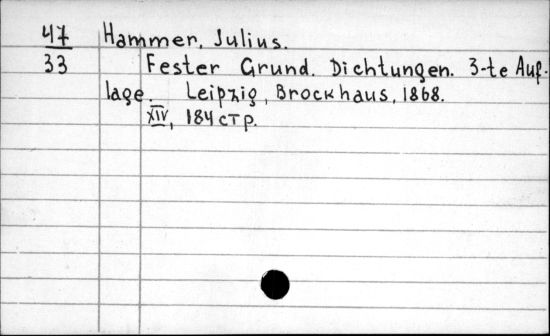 47 Hammer, Julius.
33 Fester Grund. Dichtungen. 3-te Auf-
lage. Leipzig, Brockhaus, 1868.
XIV, 184 стр.